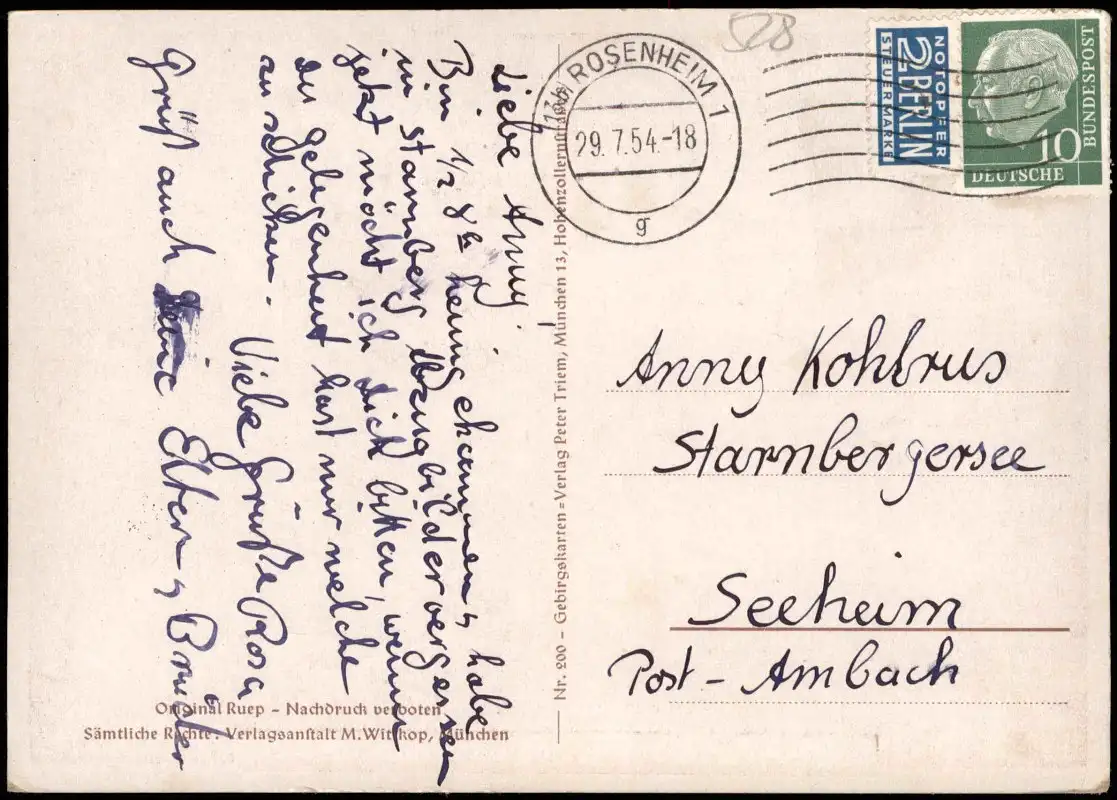 Liebe Anny!
Bin 1/2 8 h heimgekommen, habe
in Starnberg Abzugbilder vergessen
jetzt möcht ich dich bitten, wenn
du gelegenheit hast mir welche
zu schicken. Viele Grüße Rosa
Grüß auch deine Eltern, Brüder
Original Ruep – Nachdruck verboten
Sämtliche Rechte: Verlagsanstalt M. Wittkop, München
Nr. 200 – Gebirgskarten=Verlag Peter Triem, München 13, Hohenzollernstraße
528
(13b) ROSENHEIM 1
29.7.54.-18
g
NOTOPFER
2 BERLIN
STEUERMARKE
10
DEUTSCHE
BUNDESPOST
Anny Kohlrus
Starnbergersee
Seeheim
Post - Ambach